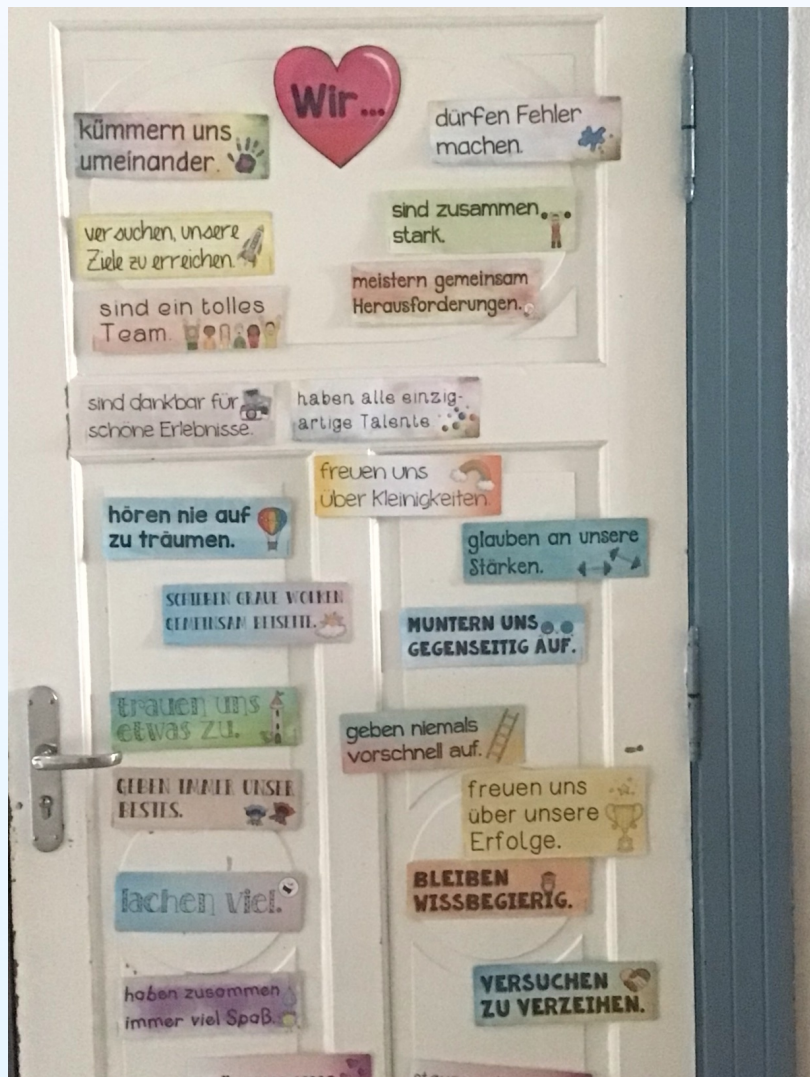 Wir...
kümmern uns
umeinander.
dürfen Fehler
machen.
versuchen, unsere
Ziele zu erreichen.
sind zusammen
stark.
meistern gemeinsam
Herausforderungen.
sind ein tolles
Team.
sind dankbar für
schöne Erlebnisse.
haben alle einzig-
artige Talente
freuen uns
über Kleinigkeiten.
hören nie auf
zu träumen.
glauben an unsere
Stärken.
SCHIEBEN GRAUE WOLKEN
GEMEINSAM BEISEITE.
MUNTERN UNS
GEGENSEITIG AUF.
trauen uns
etwas zu.
geben niemals
vorschnell auf.
GEBEN IMMER UNSER
BESTES.
freuen uns
über unsere
Erfolge.
lachen viel.
BLEIBEN
WISSBEGIERIG.
haben zusammen
immer viel Spaß.
VERSUCHEN
ZU VERZEIHEN.